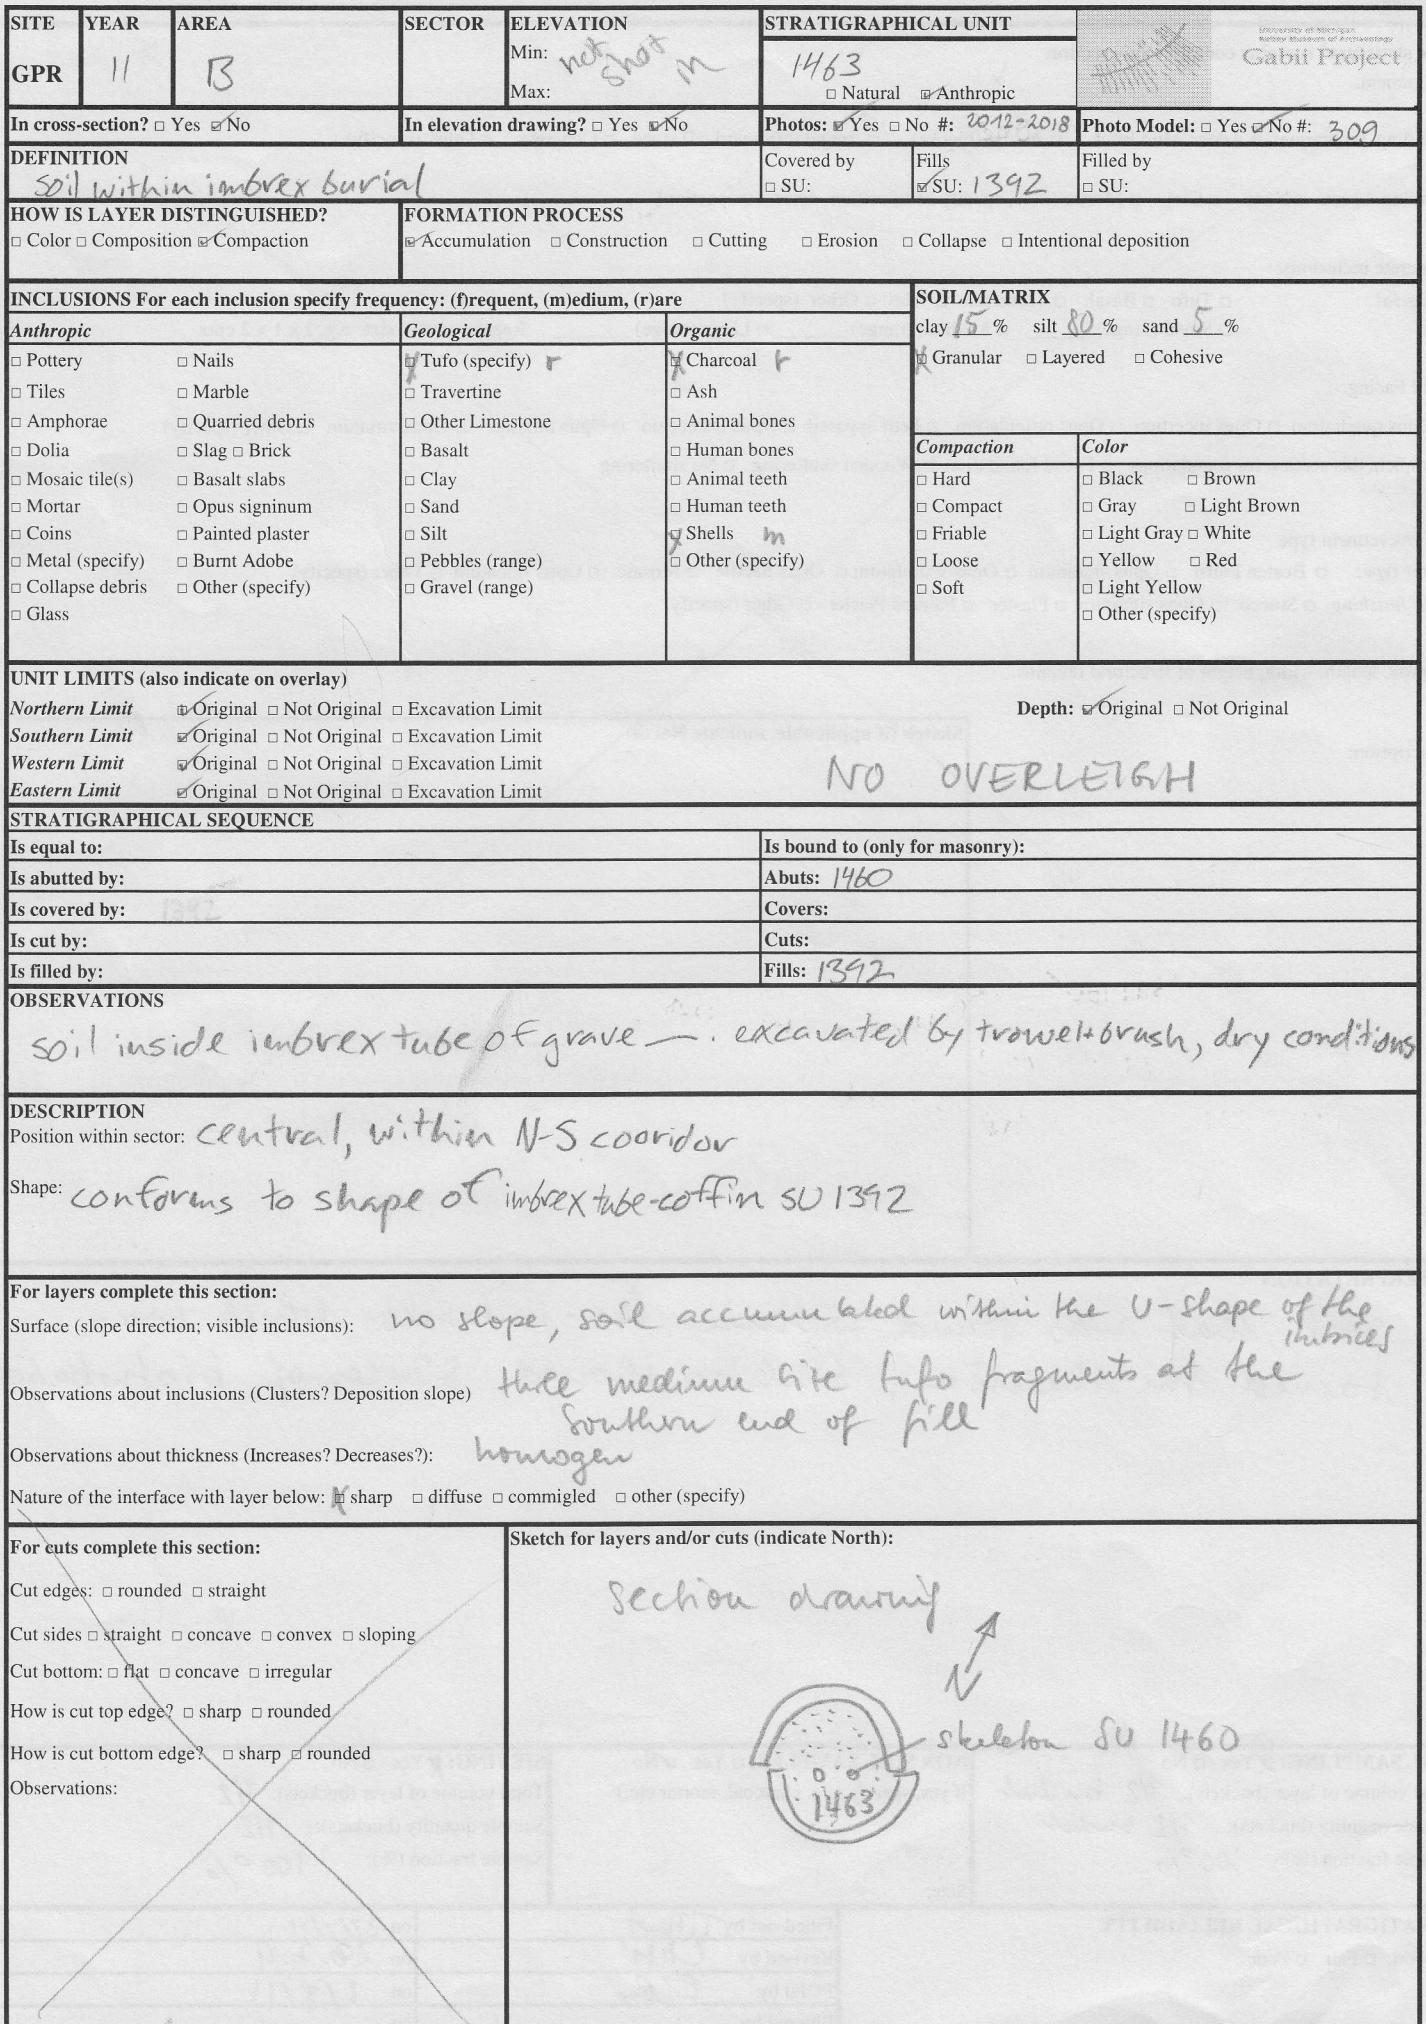 SITE YEAR AREA SECTOR ELEVATION STRATIGRAPHICAL UNIT
GPR 11 B Min: not shot Max: 1463
□ Natural ☑ Anthropic
University of Michigan
Kelsey Museum of Archaeology
Gabii Project
In cross-section? □ Yes ☑ No In elevation drawing? □ Yes ☑ No Photos: ☑ Yes □ No #: 2012-2018 Photo Model: □ Yes ☑ No #: 309
DEFINITION
soil within imbrex burial
Covered by
□ SU:
Fills
☑ SU: 1392
Filled by
□ SU:
HOW IS LAYER DISTINGUISHED?
□ Color □ Composition ☑ Compaction
FORMATION PROCESS
☑ Accumulation □ Construction □ Cutting □ Erosion □ Collapse □ Intentional deposition
INCLUSIONS For each inclusion specify frequency: (f)requent, (m)edium, (r)are
Anthropic
□ Pottery □ Nails
□ Tiles □ Marble
□ Amphorae □ Quarried debris
□ Dolia □ Slag □ Brick
□ Mosaic tile(s) □ Basalt slabs
□ Mortar □ Opus signinum
□ Coins □ Painted plaster
□ Metal (specify) □ Burnt Adobe
□ Collapse debris □ Other (specify)
□ Glass
Geological
☒ Tufo (specify) r
□ Travertine
□ Other Limestone
□ Basalt
□ Clay
□ Sand
□ Silt
□ Pebbles (range)
□ Gravel (range)
Organic
☒ Charcoal r
□ Ash
□ Animal bones
□ Human bones
□ Animal teeth
□ Human teeth
☒ Shells m
□ Other (specify)
SOIL/MATRIX
clay 15 % silt 80 % sand 5 %
☒ Granular □ Layered □ Cohesive
Compaction
□ Hard
□ Compact
□ Friable
□ Loose
□ Soft
Color
□ Black □ Brown
□ Gray □ Light Brown
□ Light Gray □ White
□ Yellow □ Red
□ Light Yellow
□ Other (specify)
UNIT LIMITS (also indicate on overlay)
Northern Limit ☑ Original □ Not Original □ Excavation Limit Depth: ☑ Original □ Not Original
Southern Limit ☑ Original □ Not Original □ Excavation Limit
Western Limit ☑ Original □ Not Original □ Excavation Limit
NO OVERLEIGH
Eastern Limit ☑ Original □ Not Original □ Excavation Limit
STRATIGRAPHICAL SEQUENCE
Is equal to: Is bound to (only for masonry):
Is abutted by: Abuts: 1460
Is covered by: 1392 Covers:
Is cut by: Cuts:
Is filled by: Fills: 1392
OBSERVATIONS
soil inside imbrex tube of grave —. excavated by trowel+brush, dry conditions
DESCRIPTION
Position within sector: central, within N-S cooridor
Shape: conforms to shape of imbrex tube-coffin SU 1392
For layers complete this section:
Surface (slope direction; visible inclusions): no slope, soil accumulated within the U-shape of the
imbrices
Observations about inclusions (Clusters? Deposition slope) three medium size tufo fragments at the
Southern end of fill
Observations about thickness (Increases? Decreases?): homogen
Nature of the interface with layer below: ☒ sharp □ diffuse □ commigled □ other (specify)
For cuts complete this section:
Cut edges: □ rounded □ straight
Cut sides □ straight □ concave □ convex □ sloping
Cut bottom: □ flat □ concave □ irregular
How is cut top edge? □ sharp □ rounded
How is cut bottom edge? □ sharp □ rounded
Observations:
Sketch for layers and/or cuts (indicate North):
Section drawing
N
skeleton SU 1460
1463